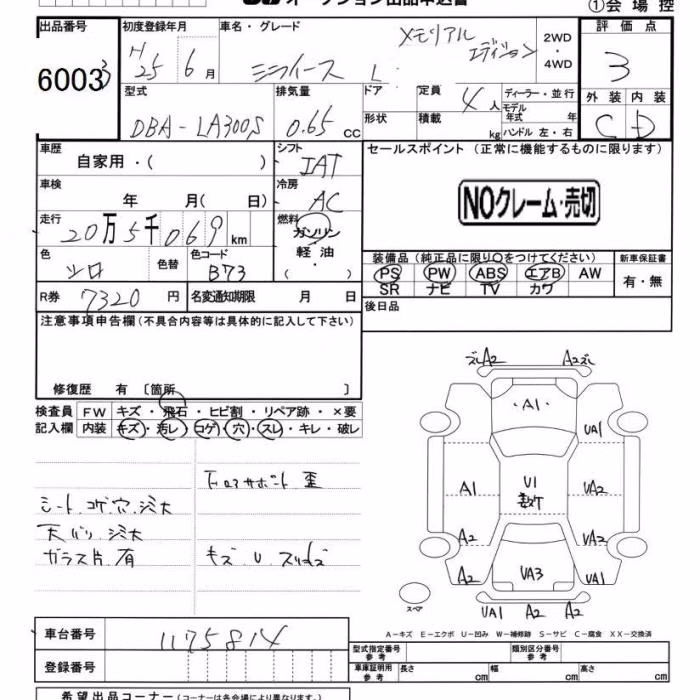 オークション出品申込書
①会場控
出品番号 初度登録年月 車名・グレード 評価点
60033 H25 6月 ミライース L メモリアルエディション 2WD・4WD 3
型式 排気量 ドア 定員 ディーラー・並行 外装 内装
DBA-LA300S 0.65 cc 4人 モデル年式 年 C D
形状 積載 kg ハンドル 左・右
車歴 自家用・( ) シフト IAT セールスポイント (正常に機能するものに限ります)
車検 年 月( 日) 冷房 AC NOクレーム・売切
走行 20万5千069km 燃料 ガソリン 軽油・( )
色 シロ 色替 色コード B73
装備品 (純正品に限り○をつけてください) 新車保証書
PS PW ABS エアB AW 有・無
SR ナビ TV カワ
R券 7320円 名変通知期限 月 日
後日品
注意事項申告欄 (不具合内容等は具体的に記入して下さい)
修復歴 有 〔箇所 〕
検査員 FW キズ・飛石・ヒビ割・リペア跡・×要
記入欄 内装 キズ・汚レ・コゲ・穴・スレ・キレ・破レ
シート コゲ 穴 シミ大
天バリ シミ大
ガラス片 有
下ロアサポート 歪
キズ U スリキズ
ズレA2 A2ズレ
A1
UA1
A1 U1 UA2
A2 UA2
A2 UA3 UA1
スペア
UA1 A2 A2
A-キズ E-エクボ U-凹み W-補修跡 S-サビ C-腐食 XX-交換済
車台番号 1175814
登録番号
型式指定番号 参考 類別区分番号 参考
車庫証明用 参考 長さ cm 幅 cm 高さ cm
希望出品コーナー (コーナーは各会場により異なります。)